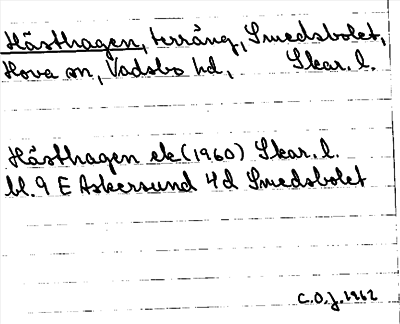 Hästhagen, terräng, Smedsbolet,
Hova sn, Vadsbo hd, Skar. l.
Hästhagen ek (1960) Skar. l.
bl. 9 E Askersund 4d Smedsbolet
C.O.J. 1962